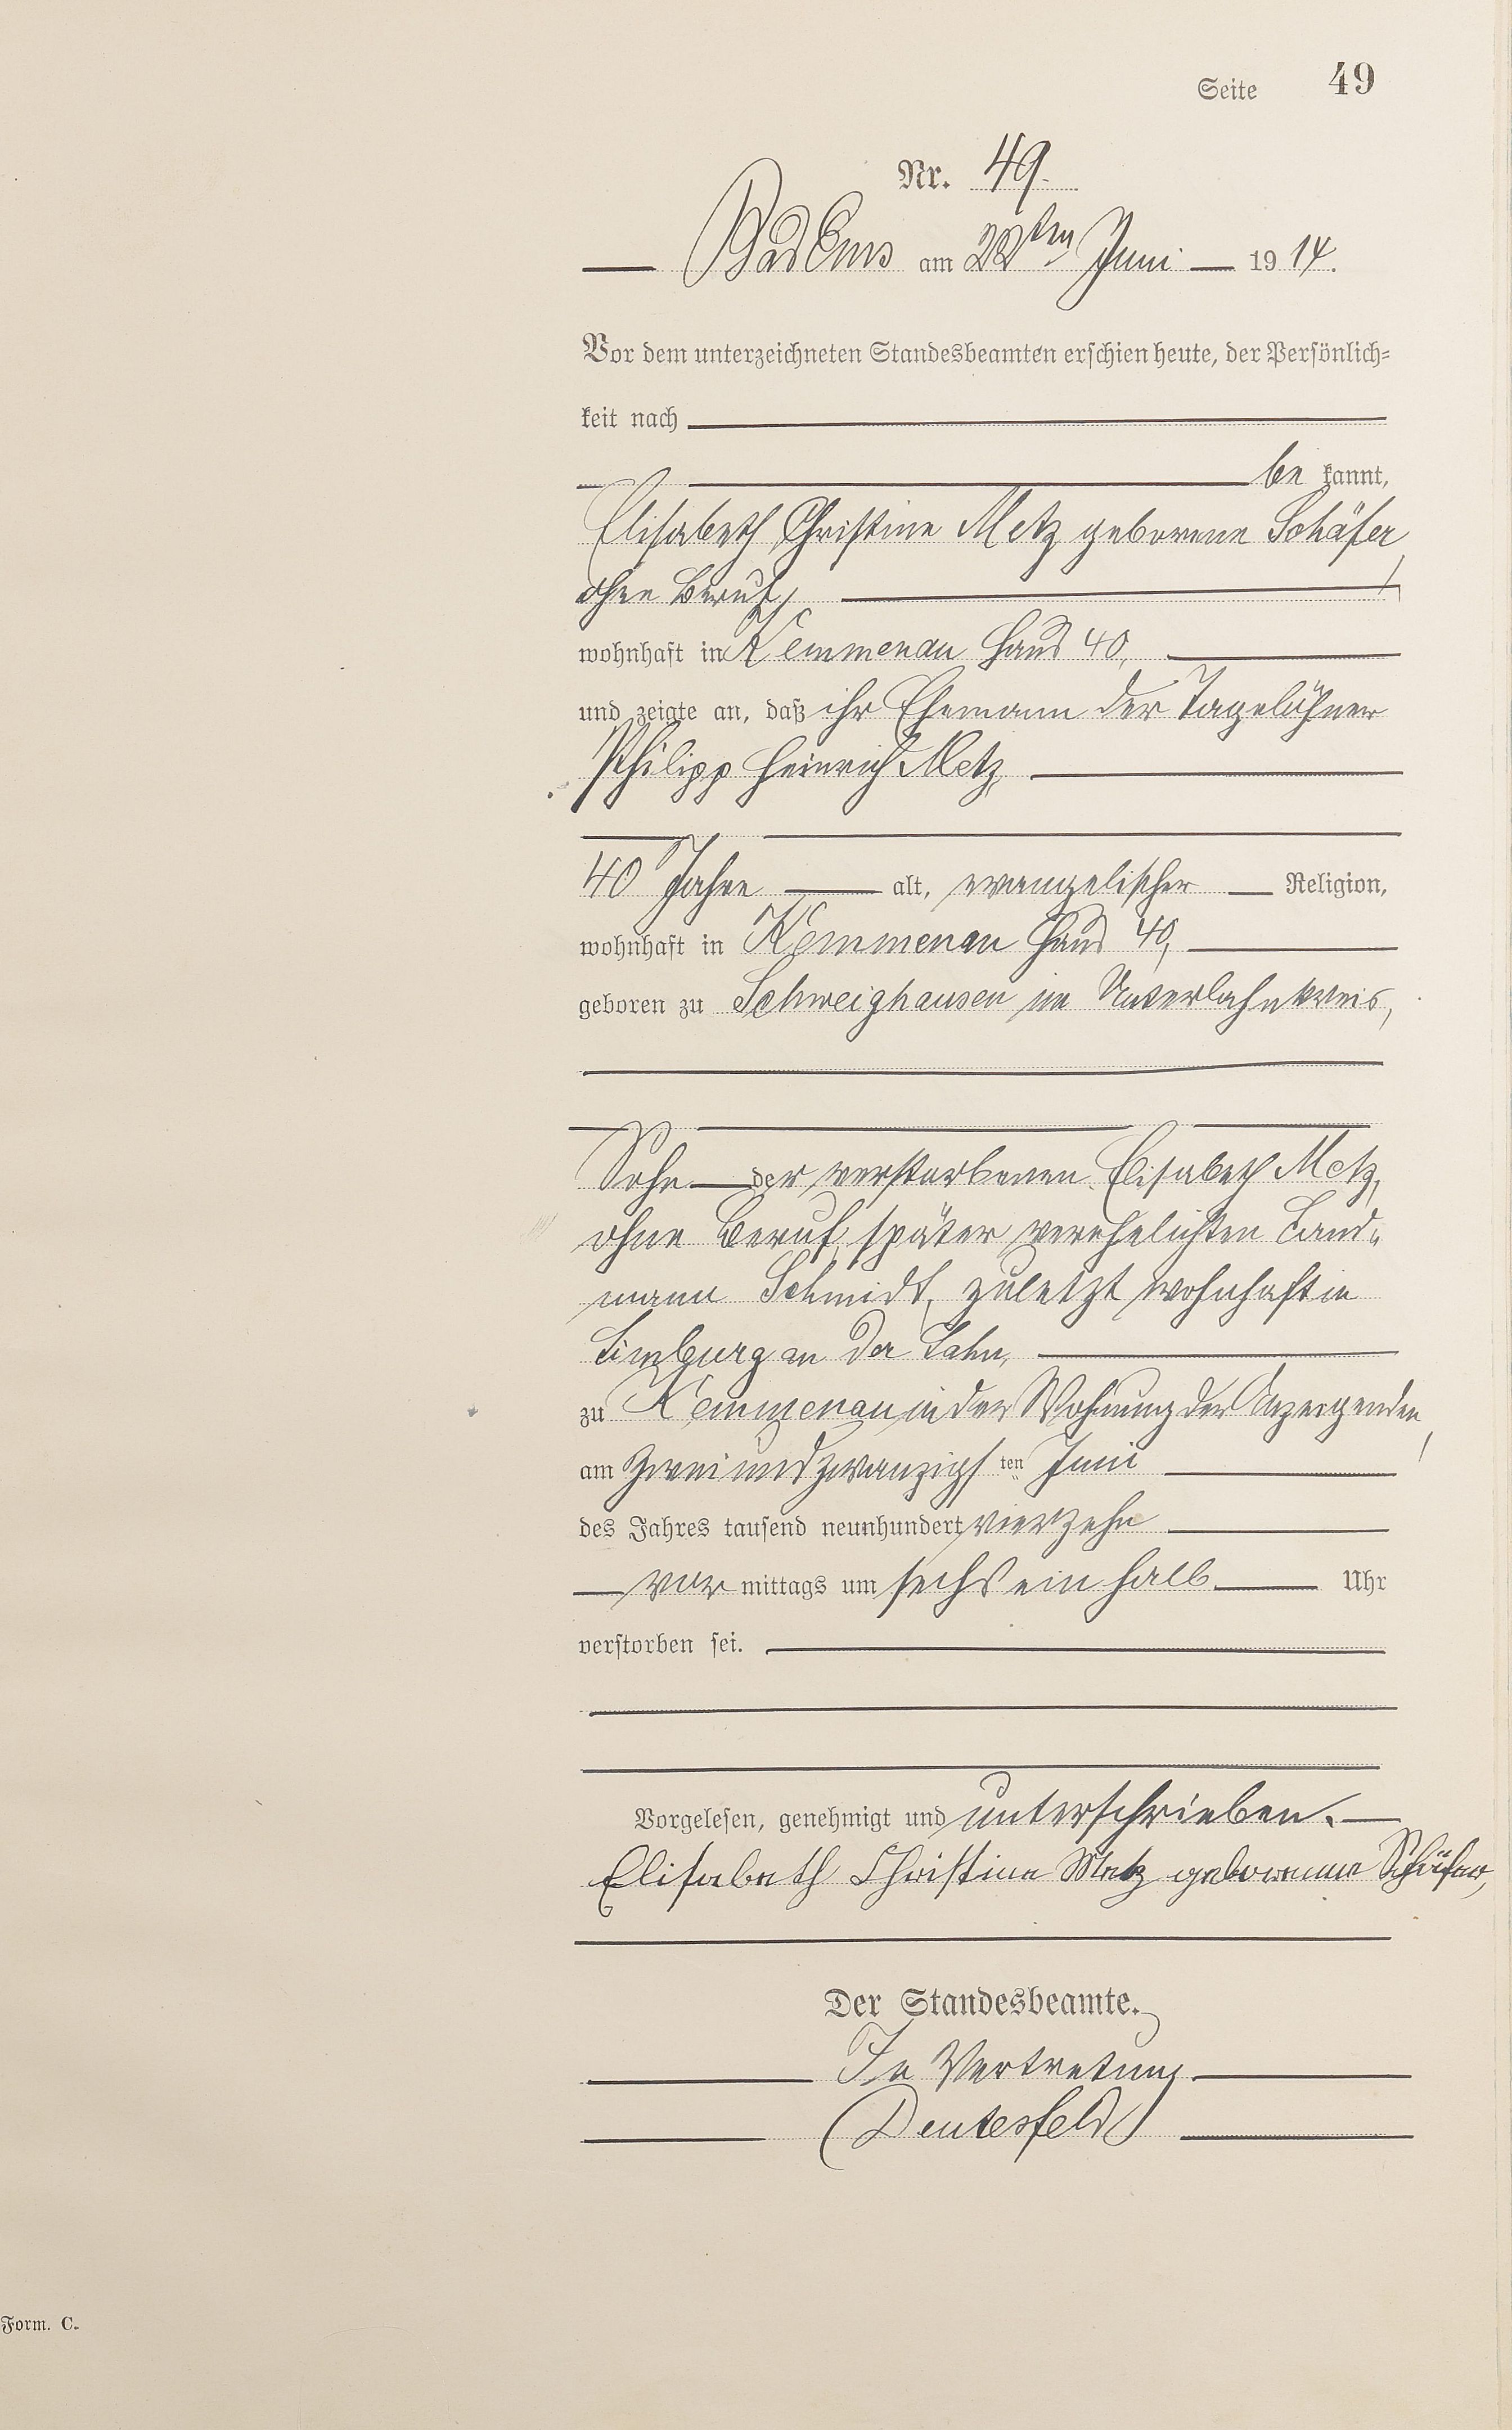 Seite 49
Nr. 49.
Bad Ems am 22ten Juni 1914.
Vor dem unterzeichneten Standesbeamten erschien heute, der Persönlich-
keit nach
bekannt,
Elisabeth Christine Metz geborene Schäfer,
ohne Beruf,
wohnhaft in Kemmenau Haus 40,
und zeigte an, daß ihr Ehemann der Tagelöhner
Philipp Heinrich Metz,
40 Jahre alt, evangelischer Religion,
wohnhaft in Kemmenau Haus 40,
geboren zu Schweighausen im Unterlahnkreis,
Sohn der verstorbenen Elisabeth Metz,
ohne Beruf, später verehelichten Land-
mann Schmidt, zuletzt wohnhaft in
Limburg an der Lahn,
zu Kemmenau in der Wohnung der Anzeigenden,
am zweiundzwanzigsten Juni
des Jahres tausend neunhundert vierzehn
vormittags um sechs ein halb Uhr
verstorben sei.
Vorgelesen, genehmigt und unterschrieben.
Elisabeth Christine Metz geborenne Schäfer,
Der Standesbeamte.
In Vertretung
Deutesfeld
Form. C.